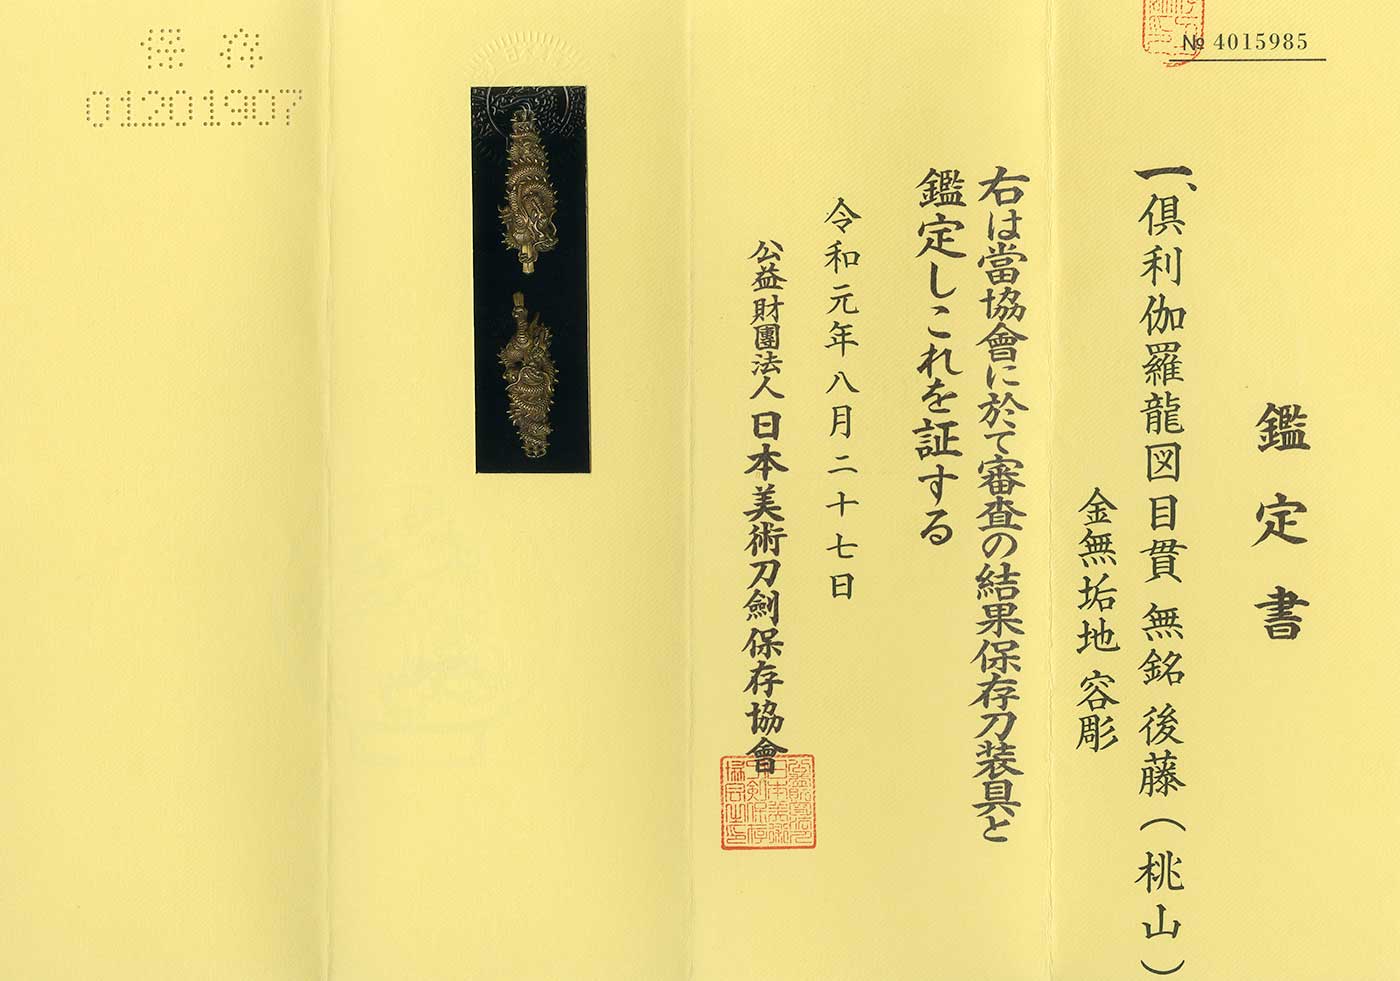 № 4015985
鑑定書
一、倶利伽羅龍図目貫 無銘 後藤（桃山）
金無垢地 容彫
右は當協會に於て審査の結果保存刀装具と
鑑定しこれを証する
令和元年八月二十七日
公益財團法人 日本美術刀劍保存協會
保存
01201907